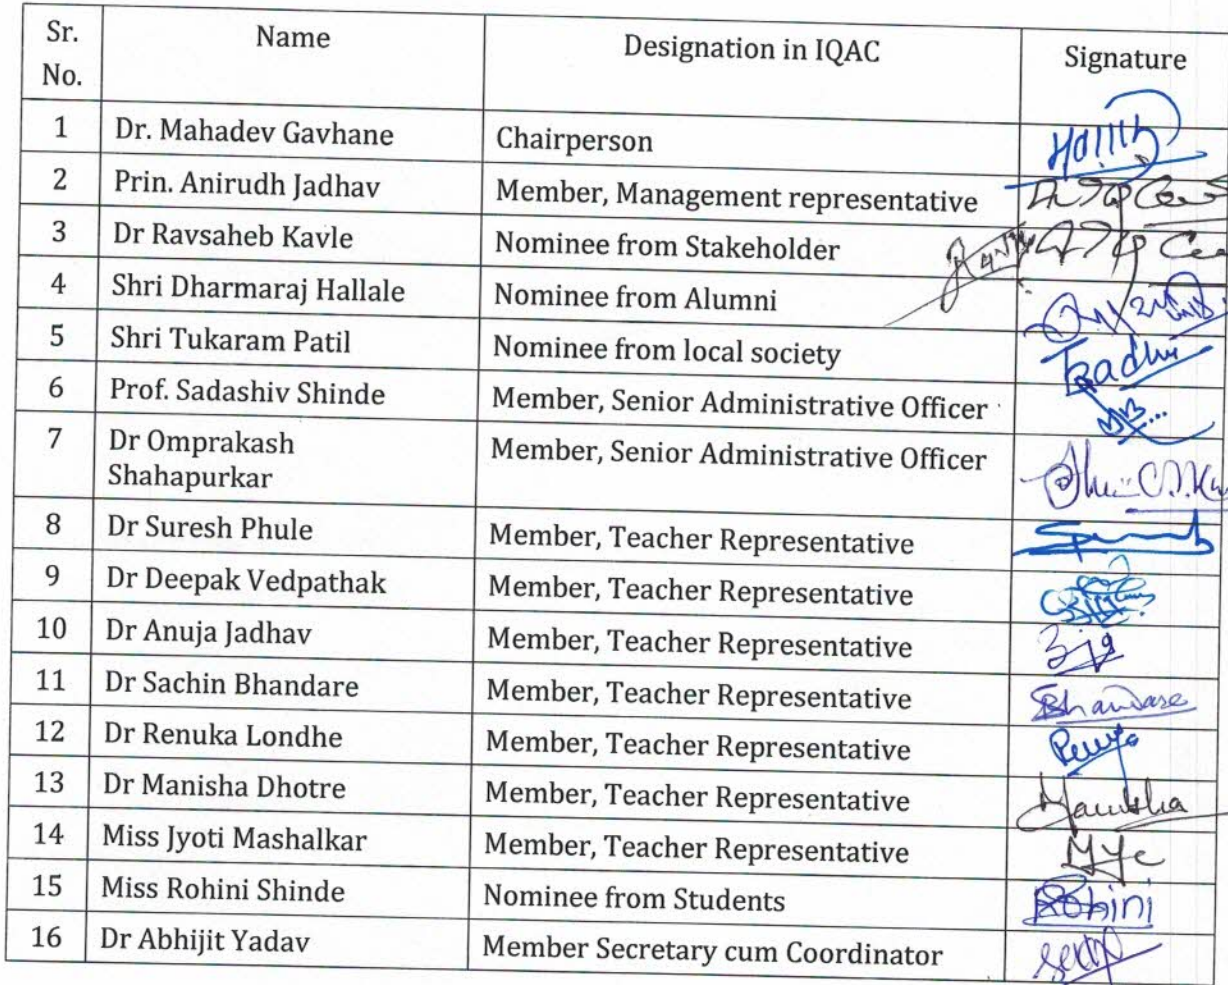 Sr. No. Name Designation in IQAC Signature
1 Dr. Mahadev Gavhane Chairperson
2 Prin. Anirudh Jadhav Member, Management representative
3 Dr Ravsaheb Kavle Nominee from Stakeholder
4 Shri Dharmaraj Hallale Nominee from Alumni
5 Shri Tukaram Patil Nominee from local society
6 Prof. Sadashiv Shinde Member, Senior Administrative Officer
7 Dr Omprakash Member, Senior Administrative Officer
Shahapurkar
8 Dr Suresh Phule Member, Teacher Representative
9 Dr Deepak Vedpathak Member, Teacher Representative
10 Dr Anuja Jadhav Member, Teacher Representative
11 Dr Sachin Bhandare Member, Teacher Representative Bhandare
12 Dr Renuka Londhe Member, Teacher Representative
13 Dr Manisha Dhotre Member, Teacher Representative Manisha
14 Miss Jyoti Mashalkar Member, Teacher Representative
15 Miss Rohini Shinde Nominee from Students Rohini
16 Dr Abhijit Yadav Member Secretary cum Coordinator